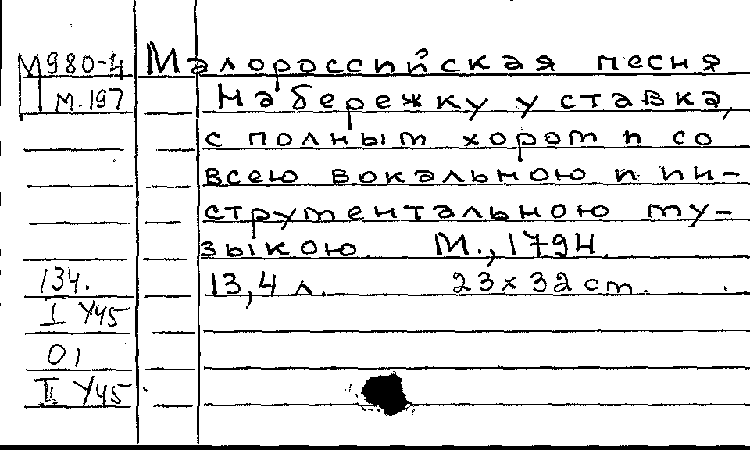 М980-4 Малороссийская песня
М.197 На бережку у ставка,
с полным хором и со
всею вокальною и ин-
струментальною му-
зыкою. М., 1794.
134. 13,4 л. 23х32 cm.
I У45
01
II У45